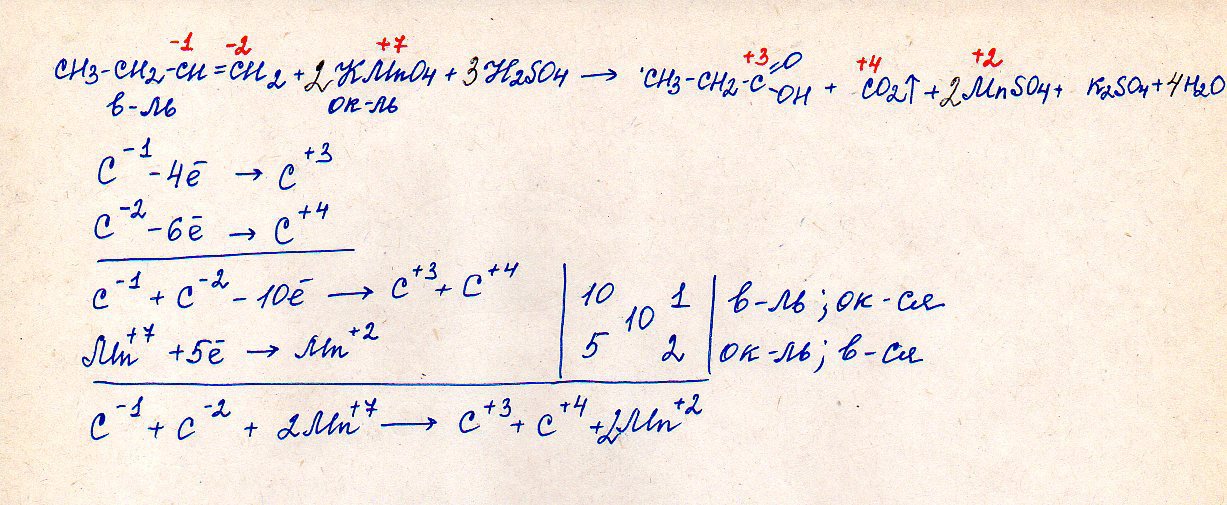 -1 -2 +7 +3 +4 +2
CH3-CH2-CH=CH2+2KMnO4+3H2SO4→CH3-CH2-C=O-OH+CO2↑+2MnSO4+K2SO4+4H2O
в-ль ок-ль
C-1-4ē→C+3
C-2-6ē→C+4
C-1+C-2-10ē→C+3+C+4 | 10 1 | в-ль; ок-ся
10
Mn+7+5ē→Mn+2 | 5 2 | ок-ль; в-ся
C-1+C-2+2Mn+7→C+3+C+4+2Mn+2